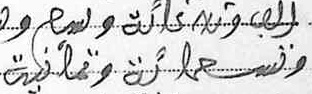 الف وثلاثمائة وسبع و
وتسعمائة وثمانية